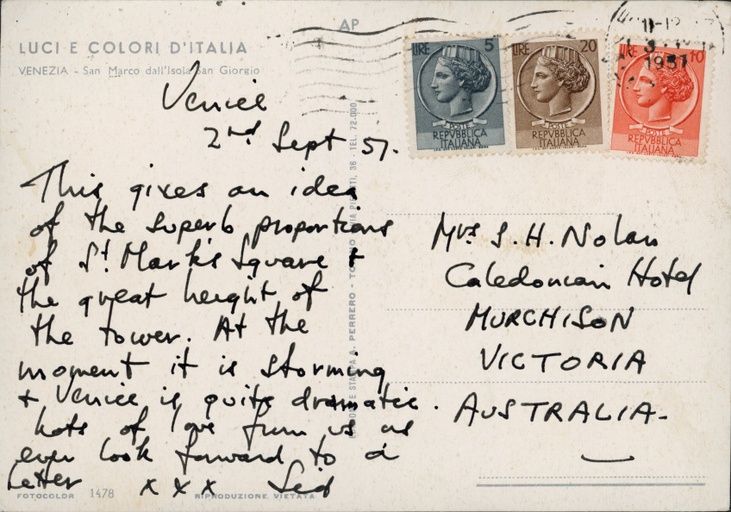 AP
LUCI E COLORI D'ITALIA
VENEZIA - San Marco dall'Isola San Giorgio
Venice
2nd Sept 57.
This gives an idea
of the superb proportions
of St. Mark's Square +
the great height of
the tower. At the
moment it is storming
+ Venice is quite dramatic.
hots of love from us as
ever look forward to a
letter x x x Sid
FOTOCOLOR 1478 RIPRODUZIONE VIETATA
A. PERRERO - 36 - TEL. 72.000
LIRE 5
POSTE
REPVBBLICA
ITALIANA
LIRE 20
POSTE
REPVBBLICA
ITALIANA
10
POSTE
REPVBBLICA
ITALIANA
11-12
3
1957
Mrs S. H. Nolan
Caledonian Hotel
MURCHISON
VICTORIA
AUSTRALIA-